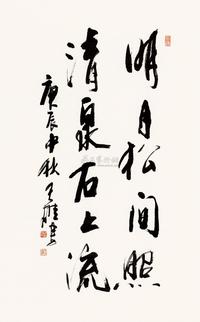 明月松间照
清泉石上流
庚辰中秋